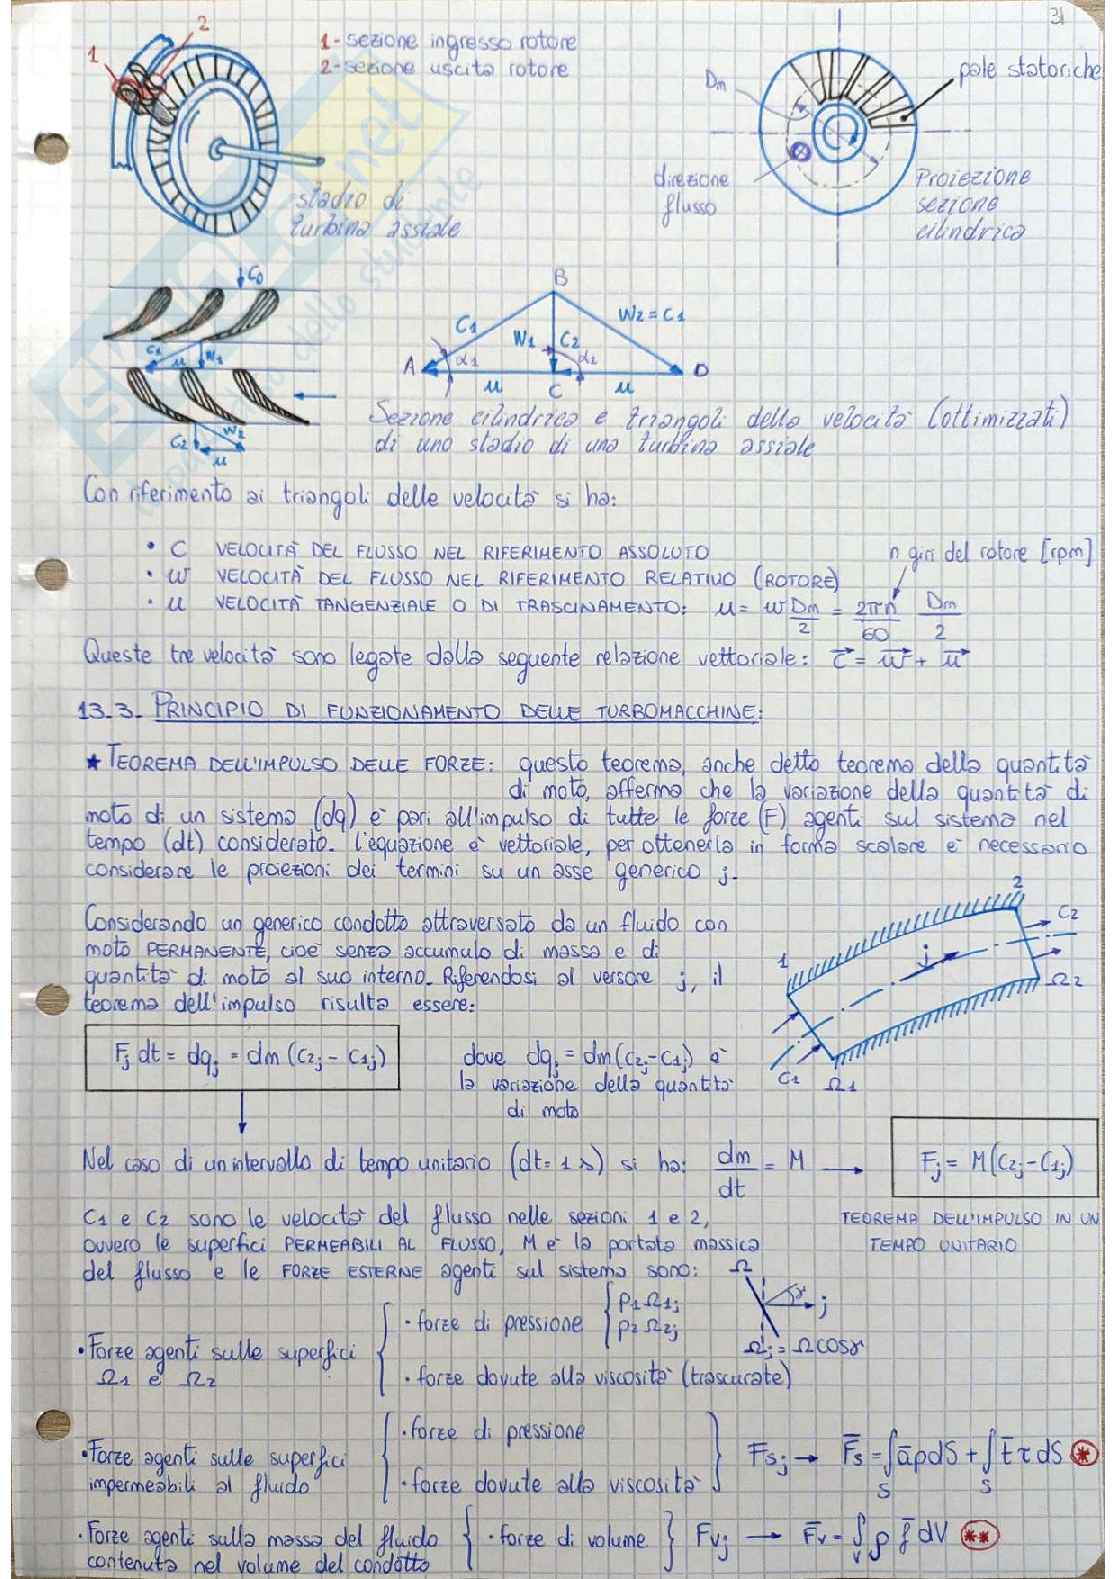 31
1
2
1-sezione ingresso rotore
2-sezione uscita rotore
stadio di
turbina assiale
Dm
pale statoriche
direzione
flusso
Proiezione
sezione
cilindrica
C0
C1
u
W1
C2
W2
u
B
C1
W1
C2
W2=C1
A
α1
α2
D
u
C
u
Sezione cilindrica e triangoli della velocità (ottimizzati)
di uno stadio di una turbina assiale
Con riferimento ai triangoli delle velocità si ha:
• C VELOCITÀ DEL FLUSSO NEL RIFERIMENTO ASSOLUTO
n giri del rotore [rpm]
• W VELOCITÀ DEL FLUSSO NEL RIFERIMENTO RELATIVO (ROTORE)
• u VELOCITÀ TANGENZIALE O DI TRASCINAMENTO: u = ω Dm/2 = 2πn/60 Dm/2
Queste tre velocità sono legate dalla seguente relazione vettoriale: c⃗ = w⃗ + u⃗
13.3. PRINCIPIO DI FUNZIONAMENTO DELLE TURBOMACCHINE:
★ TEOREMA DELL'IMPULSO DELLE FORZE: questo teorema, anche detto teorema della quantità
di moto, afferma che la variazione della quantità di
moto di un sistema (dq) è pari all'impulso di tutte le forze (F) agenti sul sistema nel
tempo (dt) considerato. L'equazione è vettoriale, per ottenerla in forma scalare è necessario
considerare le proiezioni dei termini su un asse generico j.
Considerando un generico condotto attraversato da un fluido con
moto PERMANENTE, cioè senza accumulo di massa e di
quantità di moto al suo interno. Riferendosi al versore j, il
teorema dell'impulso risulta essere:
1
2
C2
j
Ω2
C1
Ω1
Fj dt = dqj = dm (C2j - C1j)
dove dqj = dm(C2j-C1j) è
la variazione della quantità
di moto
Nel caso di un intervallo di tempo unitario (dt=1s) si ha: dm/dt = M → Fj = M(C2j-C1j)
C1 e C2 sono le velocità del flusso nelle sezioni 1 e 2,
TEOREMA DELL'IMPULSO IN UN
ovvero le superfici PERMEABILI AL FLUSSO, M è la portata massica
TEMPO UNITARIO
del flusso e le FORZE ESTERNE agenti sul sistema sono:
Ω
γ
j
Ωj = Ω cosγ
• Forze agenti sulle superfici
Ω1 e Ω2
• forze di pressione { P1Ω1j
P2Ω2j
• forze dovute alla viscosità (trascurate)
• Forze agenti sulle superfici
impermeabili al fluido
• forze di pressione
• forze dovute alla viscosità
Fsj → F̄s = ∫S n̄pdS + ∫S t̄τdS *
• Forze agenti sulla massa del fluido
contenuta nel volume del condotto
{ • forze di volume } Fvj → F̄v = ∫V ρ f̄ dV **